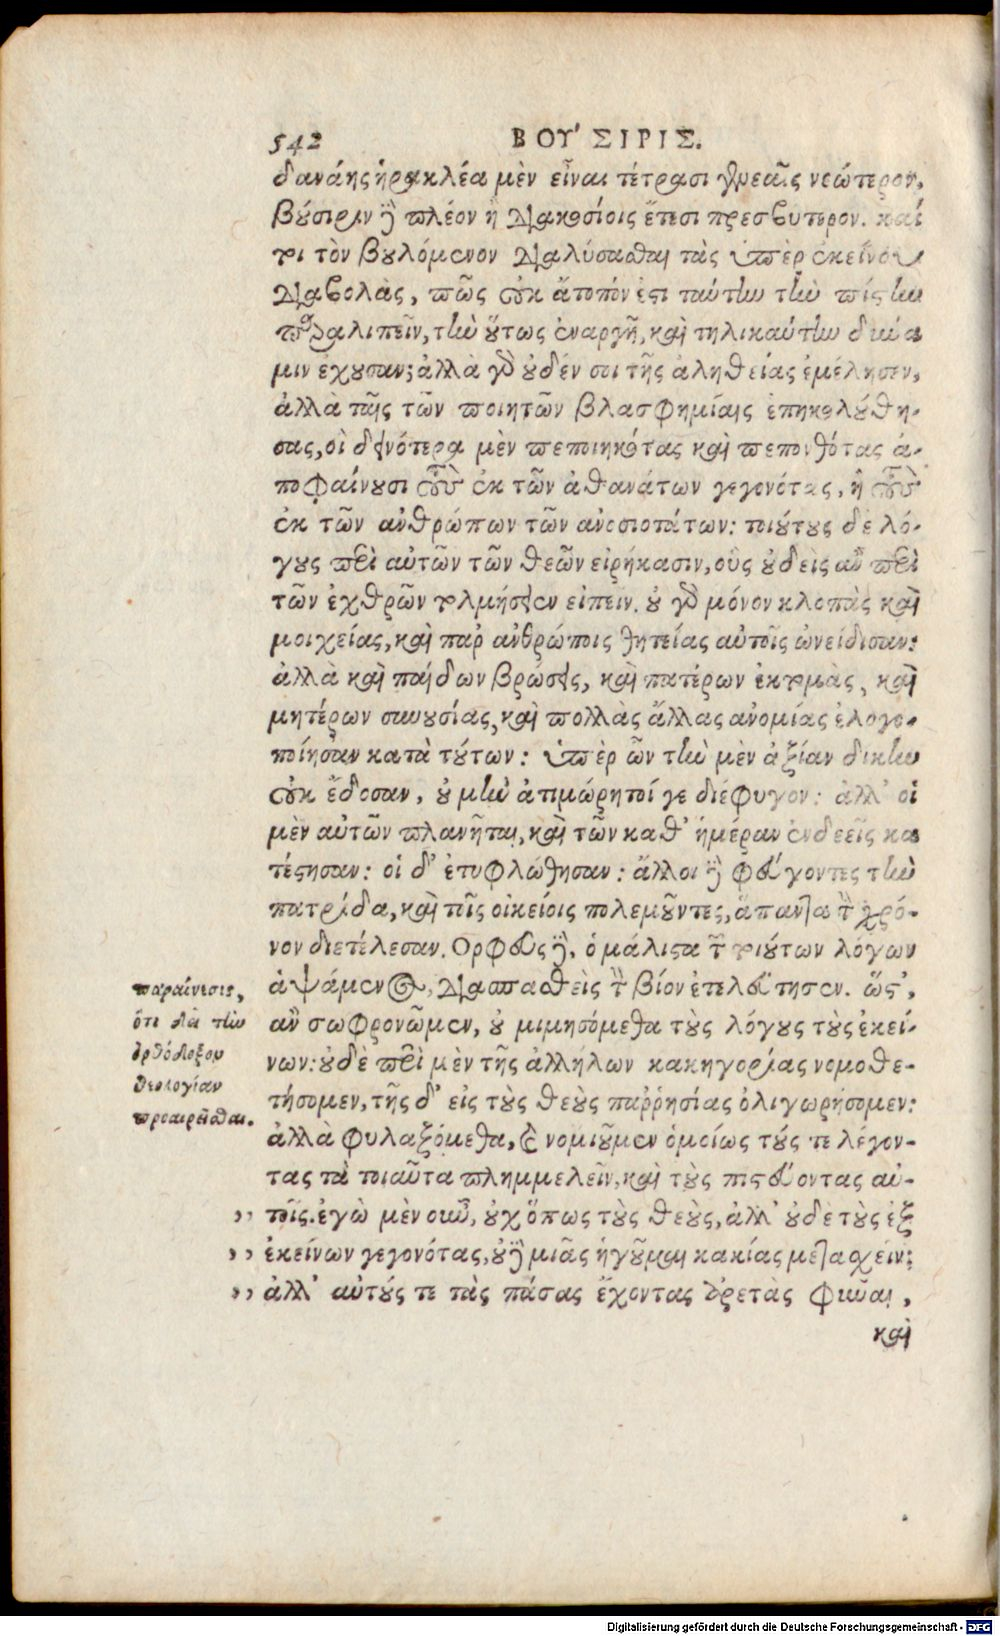 542 ΒΟΥ΄ΣΙΡΙΣ.
δανάης ἡρακλέα μὲν εἶναι τέτρασι γενεαῖς νεώτερον,
βούσιριν δὲ πλέον ἢ διακοσίοις ἔτεσι πρεσβύτερον. καί
τοι τὸν βουλόμενον διαλύσασθαι τὰς ὑπὲρ ἐκείνου
διαβολὰς, πῶς οὐκ ἄτοπόν ἐστι ταύτην τὴν πίστιν
παραλιπεῖν, τὴν οὕτως ἐναργῆ, καὶ τηλικαύτην δύνα
μιν ἔχουσαν; ἀλλὰ γὰρ οὐδέν σοι τῆς ἀληθείας ἐμέλησεν,
ἀλλὰ ταῖς τῶν ποιητῶν βλασφημίαις ἐπηκολούθη-
σας, οἳ δεινότερα μὲν πεποιηκότας καὶ πεπονθότας ἀ-
ποφαίνουσι τοὺς ἐκ τῶν ἀθανάτων γεγονότας, ἢ τοὺς
ἐκ τῶν ἀνθρώπων τῶν ἀνοσιοτάτων: τοιούτους δὲ λό-
γους περὶ αὐτῶν τῶν θεῶν εἰρήκασιν, οὓς οὐδεὶς ἂν περὶ
τῶν ἐχθρῶν τολμήσειεν εἰπεῖν. οὐ γὰρ μόνον κλοπὰς καὶ
μοιχείας, καὶ παρ ἀνθρώποις θητείας αὐτοῖς ὠνείδισαν:
ἀλλὰ καὶ παίδων βρώσεις, καὶ πατέρων ἐκτομὰς, καὶ
μητέρων συνουσίας, καὶ πολλὰς ἄλλας ἀνομίας ἐλογο-
ποίησαν κατὰ τούτων: ὑπὲρ ὧν τὴν μὲν ἀξίαν δίκην
οὐκ ἔδοσαν, οὐ μὴν ἀτιμώρητοί γε διέφυγον: ἀλλ' οἱ
μὲν αὐτῶν πλανῆται, καὶ τῶν καθ' ἡμέραν ἐνδεεῖς κα
τέστησαν: οἱ δ' ἐτυφλώθησαν: ἄλλοι δὲ φεύγοντες τὴν
πατρίδα, καὶ τοῖς οἰκείοις πολεμοῦντες, ἅπαντα τὸν χρό-
νον διετέλεσαν. Ορφεὺς δὲ, ὁ μάλιστα τῶν τοιούτων λόγων
ἁψάμενος, διασπασθεὶς τὸν βίον ἐτελεύτησεν. ὥστ',
ἂν σωφρονῶμεν, οὐ μιμησόμεθα τοὺς λόγους τοὺς ἐκεί-
νων: οὐδὲ περὶ μὲν τῆς ἀλλήλων κακηγορίας νομοθε-
τήσομεν, τῆς δ' εἰς τοὺς θεοὺς παῤῥησίας ὀλιγωρήσομεν:
ἀλλὰ φυλαξόμεθα, καὶ νομιοῦμεν ὁμοίως τούς τε λέγον-
τας τὰ τοιαῦτα πλημμελεῖν, καὶ τοὺς πιστεύοντας αὐ-
,, τοῖς. ἐγὼ μὲν οὖν, οὐχ ὅπως τοὺς θεοὺς, ἀλλ' οὐδὲ τοὺς ἐξ
,, ἐκείνων γεγονότας, οὐδὲ μιᾶς ἡγοῦμαι κακίας μετασχεῖν:
,, ἀλλ' αὐτούς τε τὰς πάσας ἔχοντας ἀρετὰς φῦναι,
καὶ
παραίνεσις,
ὅτι δεῖ τὴν
ὀρθόδοξον
θεολογίαν
προαιρεῖσθαι.
Digitalisierung gefördert durch die Deutsche Forschungsgemeinschaft - DFG